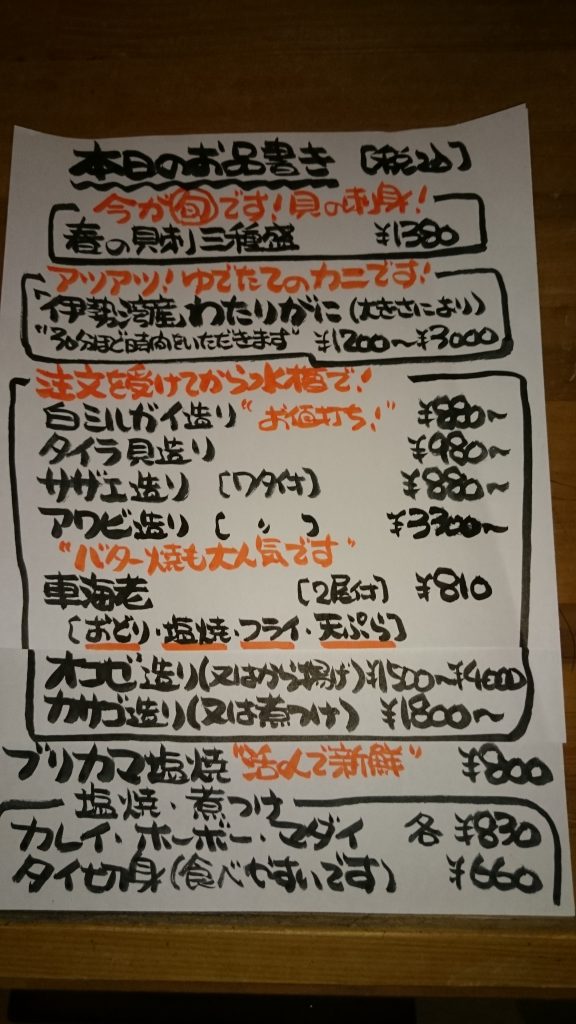 本日のお品書き [税込]
今が旬です!貝の刺身!
春の貝刺三種盛 ¥1380
アツアツ!ゆでたてのカニです!
"伊勢湾産"わたりがに(大きさにより)
"30分ほど時間をいただきます" ¥1200~¥3000
注文を受けてから水槽で!
白ミルガイ造り"お値打ち!" ¥880~
タイラ貝造り ¥980~
サザエ造り [ワタ付] ¥880~
アワビ造り [ 〃 ] ¥3300~
"バター焼も大人気です"
車海老 [2尾付] ¥810
[おどり・塩焼・フライ・天ぷら]
オコゼ造り(又はから揚げ)¥1500~¥4000
カサゴ造り(又は煮つけ) ¥1800~
ブリカマ塩焼 "活〆で新鮮" ¥800
塩焼・煮つけ
カレイ・ホーボー・マダイ 各¥830
タイ切身(食べやすいです) ¥660